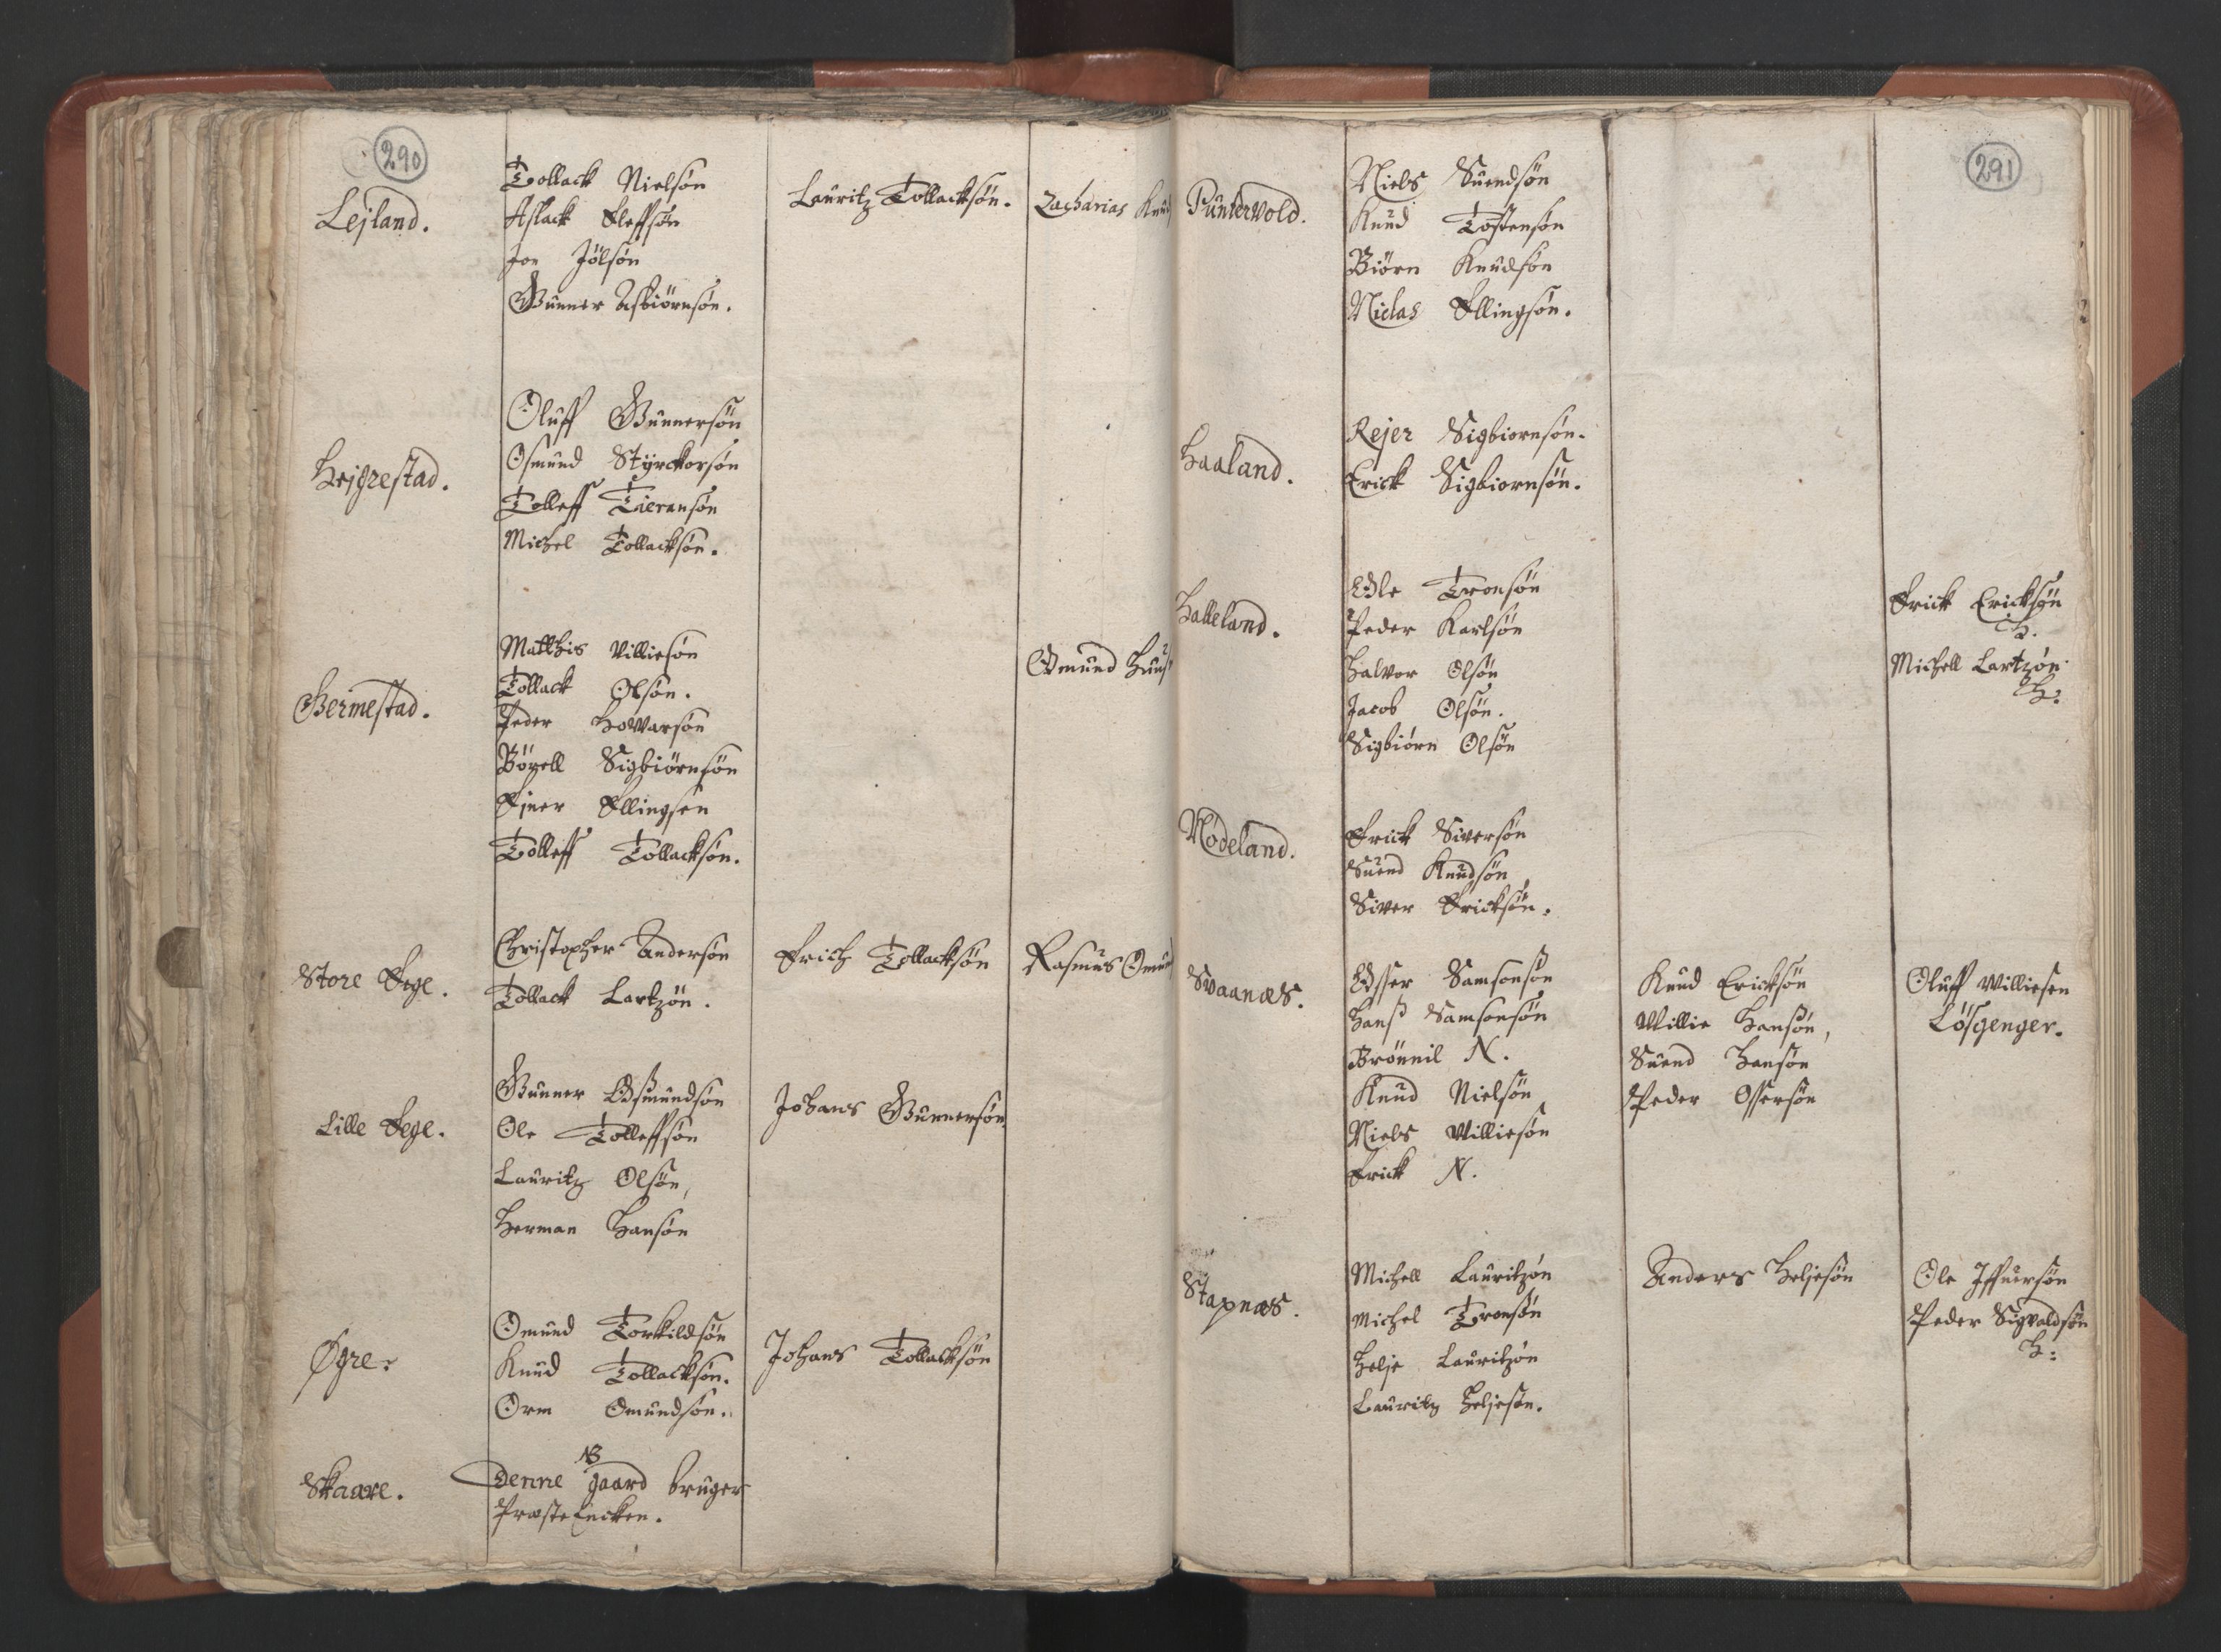 290
Lejland.
Tollack Nielsøn
Aslack Eleffsøn
Jon Jølsøn
Gunner Asbiørnsøn.
Lauritz Tollacksøn.
Zacharias Knud
Hejgrestad.
Oluff Gunnersøn
Osmund Styrckorsøn
Tolleff Tieransøn
Michel Tollacksøn.
Germestad.
Matthis Villiesøn
Tollack Olsøn.
Peder Howarsøn
Børell Sigbiørnsøn
Ejner Ellingsen
Tolleff Tollacksøn.
Omund
Store Eege.
Christopher Andersøn
Tollack Lartzøn.
Erich Tollacksøn
Rasmus Omund
Lille Eege.
Gunner Osmundsøn
Ole Tolleffsøn
Lauritz Olsøn,
Herman Hansøn
Johans Gunnersøn
Øgre.
Omund Torkildsøn
Knud Tollacksøn.
Orm Omundsøn.
Johans Tollacksøn
Skaare.
NB
Denne gaard bruger
Præste Enken.
291
Puntervold.
Niels Suendsøn
Knud Tostensøn
Biørn Knudsøn
Niclas Ellingsøn.
Haaland.
Rejer Sigbiornsøn.
Erick Sigbiornsøn.
Halleland.
Ole Tronsøn
Peder Karlsøn
Halvor Olsøn
Jacob Olsøn.
Sigbiørn Olsøn
Erick Ericksøn
H.
Michell Lartzøn.
H:
Nodeland.
Erick Siversøn
Suend Knudsøn
Siver Ericksøn.
Svaanæs.
Osser Samsonsøn
Hanß Samsonsøn
Brønnil N.
Knud Nielsøn
Niels Villiesøn
Erick N.
Knud Ericksøn
Willie Hansøn,
Suend Hansøn
Peder Ossersøn
Oluff Williesen
Løsgenger.
Stapnæs.
Michell Lauritzøn
Michel Tronsøn
Helje Lauritzøn
Lauritz Heljesøn.
Anders Heljesøn
Ole Iffuersøn
Peder Sigvaldsøn
H: